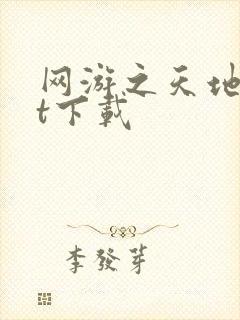 网游之天地
t下载
李發芽